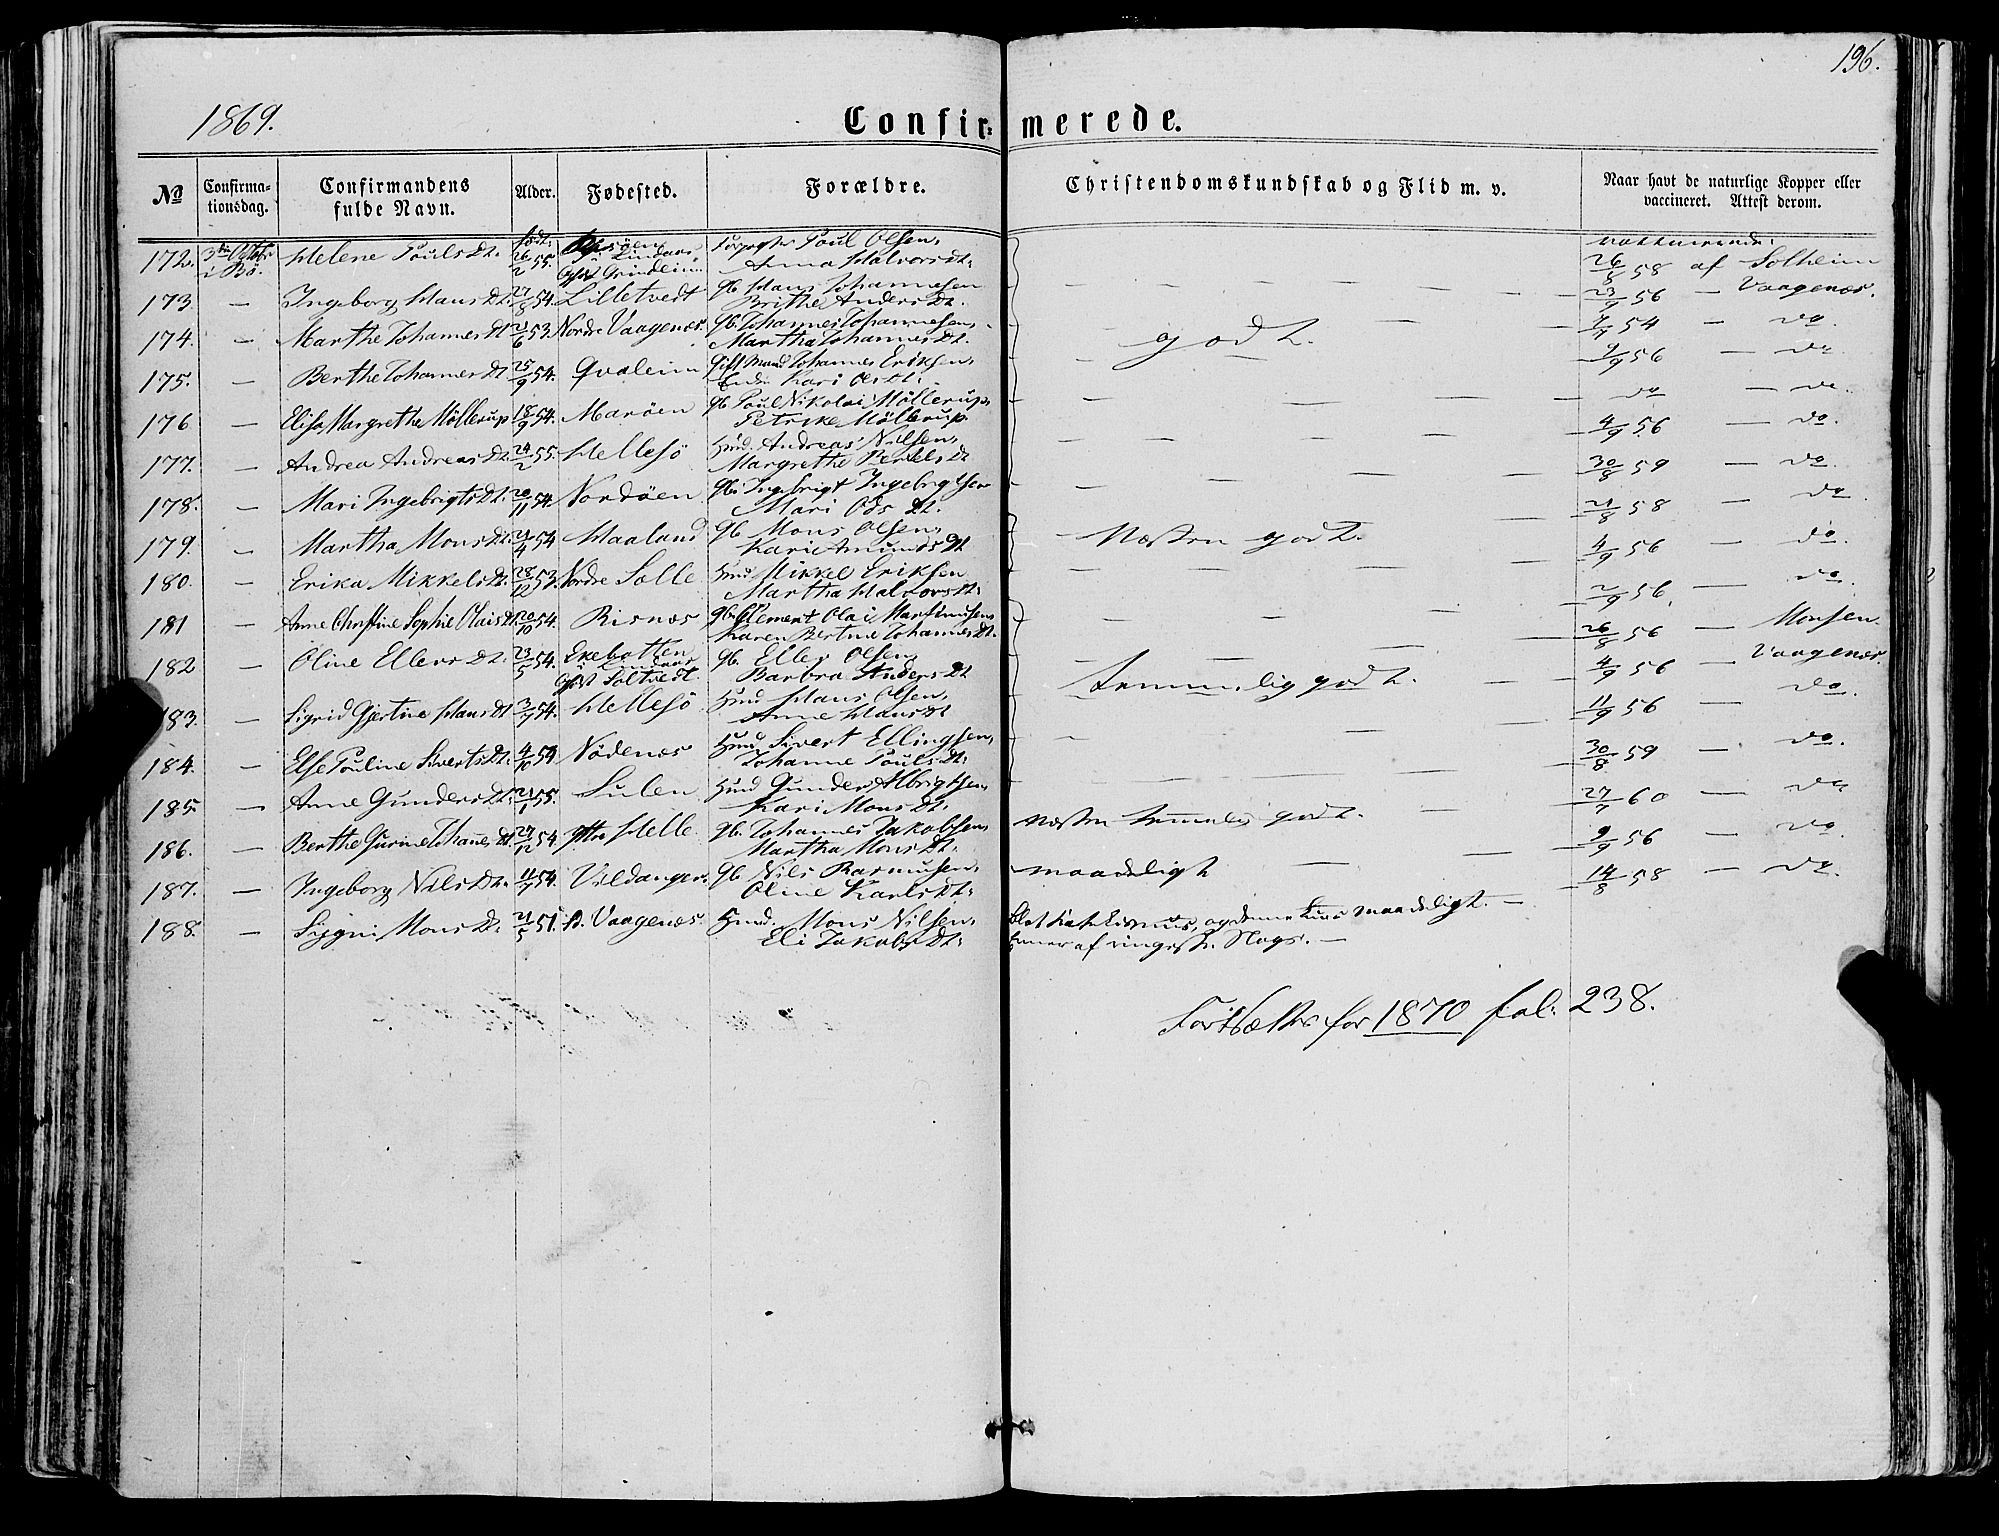 196.
1869.
Confir= merede.
No
Confirma-
tionsdag.
Confirmandens
fulde Navn.
Alder.
Fødested.
Forældre.
Christendomskundskab og Flid m. v.
Naar havt de naturlige Kopper eller
vaccineret. Attest derom.
172. 3die Octobr i Bö. Helene PoulsDt. født: 26/2 55. i Lindaas Opf. Grindeim Paul Olsen, Anna HalvorsDt: 26/8 58 af Solheim
173. — Ingeborg HansDt. 27/8 54. Lilletvedt Gb. Hans Johannesen Brithe AndersDt. 23/9 56 — Vaagenæs.
174. — Marthe JohannesDt 21/6 53. Nordre Vaagenæs Gb. Johannes Johannesen, Martha JohannesDt. godt. 4/9 54 — do.
175. — Berthe JohannesDt 25/9 54. Qvaleim Gift Mand Johannes Eriksen, Kari OlsDt. 9/9 56 — do
176 — Elisa Margrethe Möllerup 18/9 54. Maröen Gb. Poul Nikolai Möllerup, Petrike Möllerup do — do.
177. — Andrea AndreasDt. 24/2 55. Hellesö Hmd. Andreas Nilsen, Margrethe BertelsDt 4/9 56 — do.
178. — Mari IngebrigtsDt. 20/11 54. Nordöen Gb. Ingebrigt Ingebrigtsen Mari OlsDt. 30/8 59 — do.
179. — Martha MonsDt. 21/4 54 Haaland Gb Mons Olsen, Kari AmundsDt Næsten godt. 21/8 58 — do.
180. — Erika MikkelsDt. 28/12 53. Nordre Solle Hmd Mikkel Eriksen Martha HalvorsDt. 4/9 56 — do.
181 — Anne Christine Sophie OlaisDt. 20/10 54. Risnæs Gb. Clement Olai Martinusen, Karen Bertine JohannesDt. 2/9 56. — do.
182 — Oline EllersDt. 23/5 54. Exebotten i Lindaas Opf. Soltvedt Gb. Eller Olsen, Barbra AndersDt 26/8 56 — Monsen
183. — Sigrid Gjertine HansDt 3/7 54. Hellesö Hmd Hans Olsen, Anne HansDt temmelig godt. 4/9 56 — Vaagenæs.
184. — Else Pouline SivertsDt. 4/10 54 Nödenæs Hmd Sivert Ellingsen, Johanne PoulsDt. 11/9 56 — do.
185 — Anne GundersDt. 21/1 55. Sulen Hmd Gunder Albrigtsen, Kari MonsDt. 30/8 59 — do.
186. — Berthe Gurine JohannesDt. 27/12 54. Yttre Helle Gb. Johannes Jakobsen, Martha MonsDt. næsten temmelig godt. 27/7 60 — do
187. — Ingeborg NilsDt. 11/7 54. Vildanger. Gb Nils Rasmusen, Oline KarlsDt. maadeligt 9/9 56 — do
188. — Siggni MonsDt. 21/5 51. N. Vaagenæs. Hmd. Mons Nilsen, Eli JakobsDt. Blot Katekismus, og denne kun maadeligt. — af ringeste Slags. — 14/8 58 — do.
Fortsættes for 1870 fol. 238.